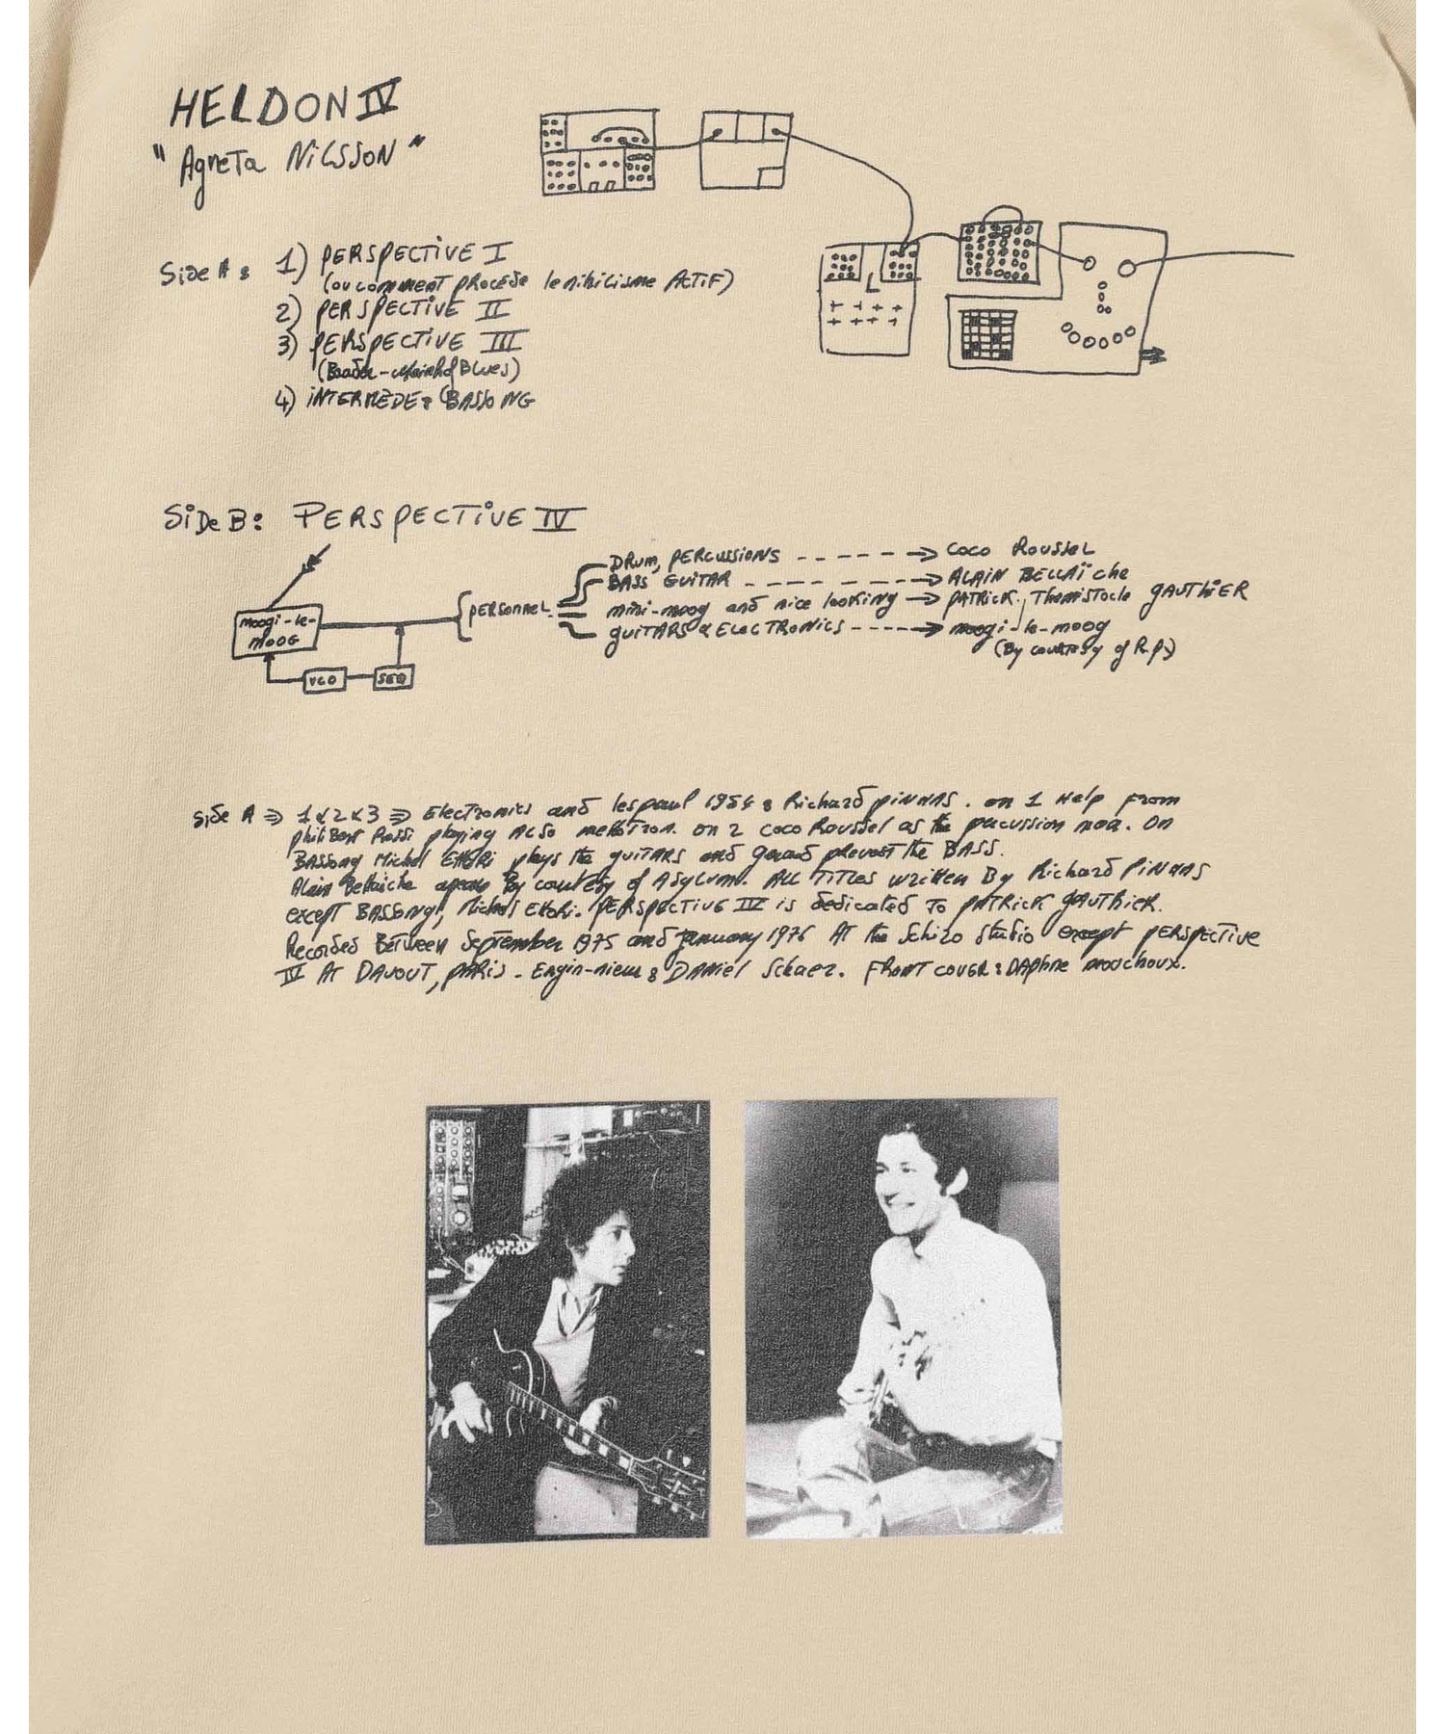 HELDON IV
"Agneta NiLSSON"
Side A: 1) PERSPECTIVE I
(ou comment procède le nihilisme ACTiF)
2) PERSPECTIVE II
3) PERSPECTIVE III
(Baader-Meinhof Blues)
4) INTERMEDE: BASSONG
SiDe B: PERSPECTiVE IV
moogi-le-
moog
VCO
SEQ
PERSONNEL
DRUM, PERCUSSIONS -----> COCO ROUSSEL
BASS GUITAR -----> ALAiN BELLAïche
mini-moog and nice looking -> PATRiCK, Themistocle GAUTHiER
guiTARS & ELECTRONiCS ----> moogi-le-moog
(By courtesy of R.P.)
Side A => 1 & 2 & 3 => Electronics and lespaul 1954: Richard PiNHAS. on 1 Help From
philibert Rossi playing ALSO mellotron. on 2 Coco Roussel as the percussion man. On
BASSong Michel Ettori plays the guiTARS and Gerard prevost the BASS.
Alain Bellaiche appears By courtesy of ASylum. ALL TiTles written By Richard PiNHAS
except BASSong, Michel Ettori. PERSPECTiVE III is dedicated TO PATRiCK GAUTHiER.
Recorded Between September 1975 and January 1976 AT the Schizo Studio except PERSPECTiVE
IV AT DAVOUT, PARiS - Engin-nieur: DANiel Schaer. FRONT COVER: DAphne mouchoux.